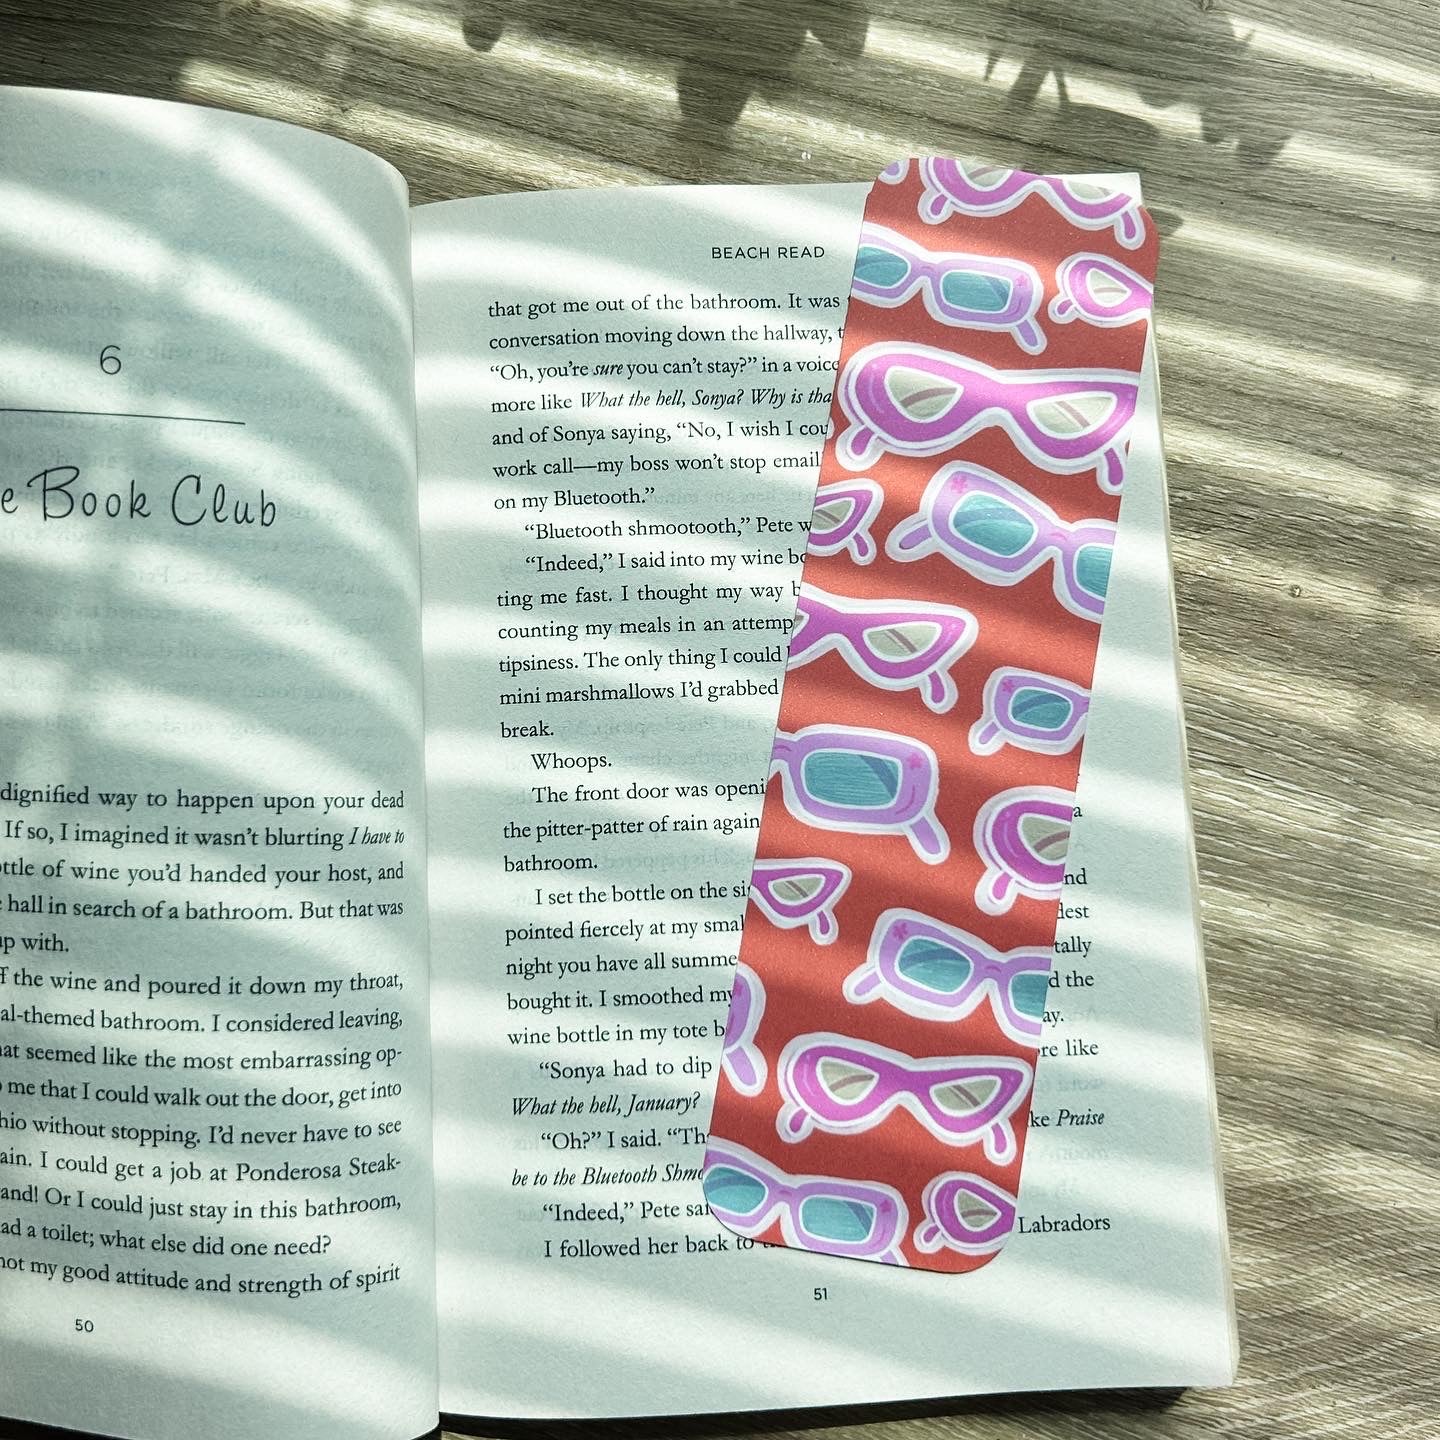 6
Book Club
dignified way to happen upon your dead
If so, I imagined it wasn't blurting I have to
of wine you'd handed your host, and
hall in search of a bathroom. But that was
with.
the wine and poured it down my throat,
bathroom. I considered leaving,
seemed like the most embarrassing op-
me that I could walk out the door, get into
without stopping. I'd never have to see
I could get a job at Ponderosa Steak-
Or I could just stay in this bathroom,
a toilet; what else did one need?
my good attitude and strength of spirit
50
BEACH READ
that got me out of the bathroom. It was
conversation moving down the hallway,
“Oh, you're sure you can't stay?” in a voice
more like What the hell, Sonya? Why is
and of Sonya saying, “No, I wish I
work call—my boss won't stop
on my Bluetooth.”
“Bluetooth shmootooth,” Pete
“Indeed,” I said into my wine
ting me fast. I thought my way
counting my meals in an
tipsiness. The only thing I could
mini marshmallows I'd grabbed
break.
Whoops.
The front door was
the pitter-patter of rain again
a
bathroom.
I set the bottle on the
pointed fiercely at my
night you have all
the
bought it. I smoothed
wine bottle in my tote
like
“Sonya had to dip
What the hell, January?
Praise
“Oh?” I said.
be to the Bluetooth
“Indeed,” Pete
Labradors
I followed her back to
51